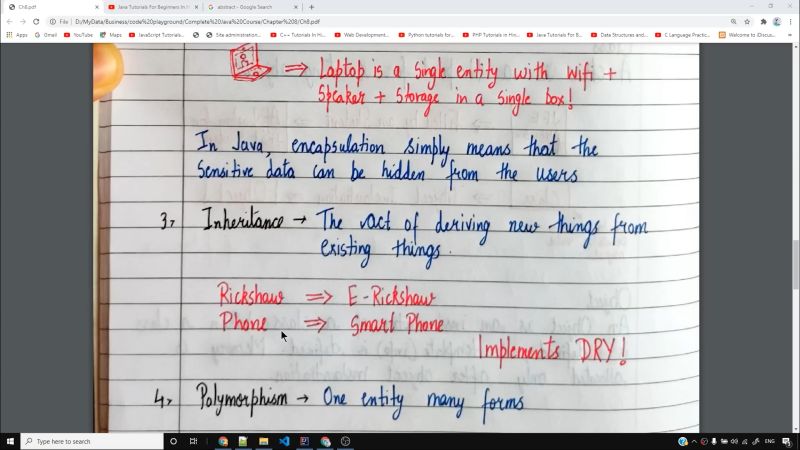 Ch8.pdf
Java Tutorials For Beginners In H
abstract - Google Search
File | D:/MyData/Business/code%20playground/Complete%20Java%20Course/Chapter%208/Ch8.pdf
Apps
Gmail
YouTube
Maps
JavaScript Tutorials...
Site administration...
C++ Tutorials In Hi...
Web Development...
Python tutorials for...
PHP Tutorials in Hin...
Java Tutorials For B...
Data Structures and...
C Language Practic...
Welcome to iDiscus...
⇒ Laptop is a single entity with Wifi +
Speaker + Storage in a single box!
In Java, encapsulation simply means that the
Sensitive data can be hidden from the users
3, Inheritance → The act of deriving new things from
existing things.
Rickshaw ⇒ E-Rickshaw
Phone ⇒ Smart Phone
Implements DRY!
4, Polymorphism → One entity many forms
Type here to search
ENG